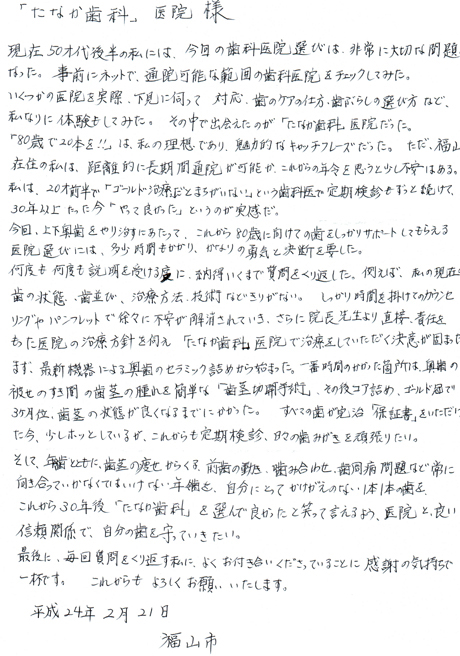 「たなか歯科」医院 様
現在50才代後半の私には、今回の歯科医院選びは、非常に大切な問題
だった。事前にネットで、通院可能な範囲の歯科医院をチェックしてみた。
いくつかの医院を実際、下見に伺って 対応、歯のケアの仕方・歯ブラシの選び方など、
私なりに体験もしてみた。その中で出会えたのが「たなか歯科」医院だった。
「80歳で20本を!!」は、私の理想であり、魅力的なキャッチフレーズだった。ただ、福山
在住の私は、距離的に長期間通院が可能か、これからの年令を思うと少し不安はある。
私は、20才前半で「ゴールド治療だとまちがいない」という歯科医で定期検診もずっと続けて、
30年以上たった今“やって良かった”というのが実感だ。
今回、上下奥歯をやり治すにあたって、これから80歳に向けての歯をしっかりサポートしてもらえる
医院選びには、多少時間もかかり、がよりの勇気と決断を要した。
何度も何度も説明を受ける度に、納得いくまで質問をくり返した。例えば、私の現在の
歯の状態・歯並び、治療方法、技術などきりがない。しっかり時間を掛けてのカウンセ
リングやパンフレットで徐々に不安が解消されていき、さらに院長先生より直接、責任を
もった医院の治療方針を伺え「たなか歯科」医院で治療をしていただく決意が固まった。
まず、最新機器による奥歯のセラミック詰めから始まった。一番時間のかかった箇所は、奥歯の
被せのすき間の歯茎の腫れを簡単な「歯茎切開手術」、その後コア詰め、ゴールド冠で
3ヶ月位、歯茎の状態が良くなるまでにかかった。すべての歯が完治「保証書」をいただい
た今、少しホッとしているが、これからも定期検診、日々の歯みがきを頑張りたい。
そして、年齢とともに、歯茎の痩せからくる、前歯の動き、噛み合わせ、歯周病問題など常に
向き合っていかなくてはいけない年齢を、自分にとってかけがえのない1本1本の歯を、
これから30年後「たなか歯科」を選んで良かったと笑って言えるよう、医院と、良い
信頼関係で、自分の歯を守っていきたい。
最後に、毎回質問をくり返す私に、よくお付き合いくださっていることに感謝の気持ちで
一杯です。これからもよろしくお願いいたします。
平成24年2月21日
福山市